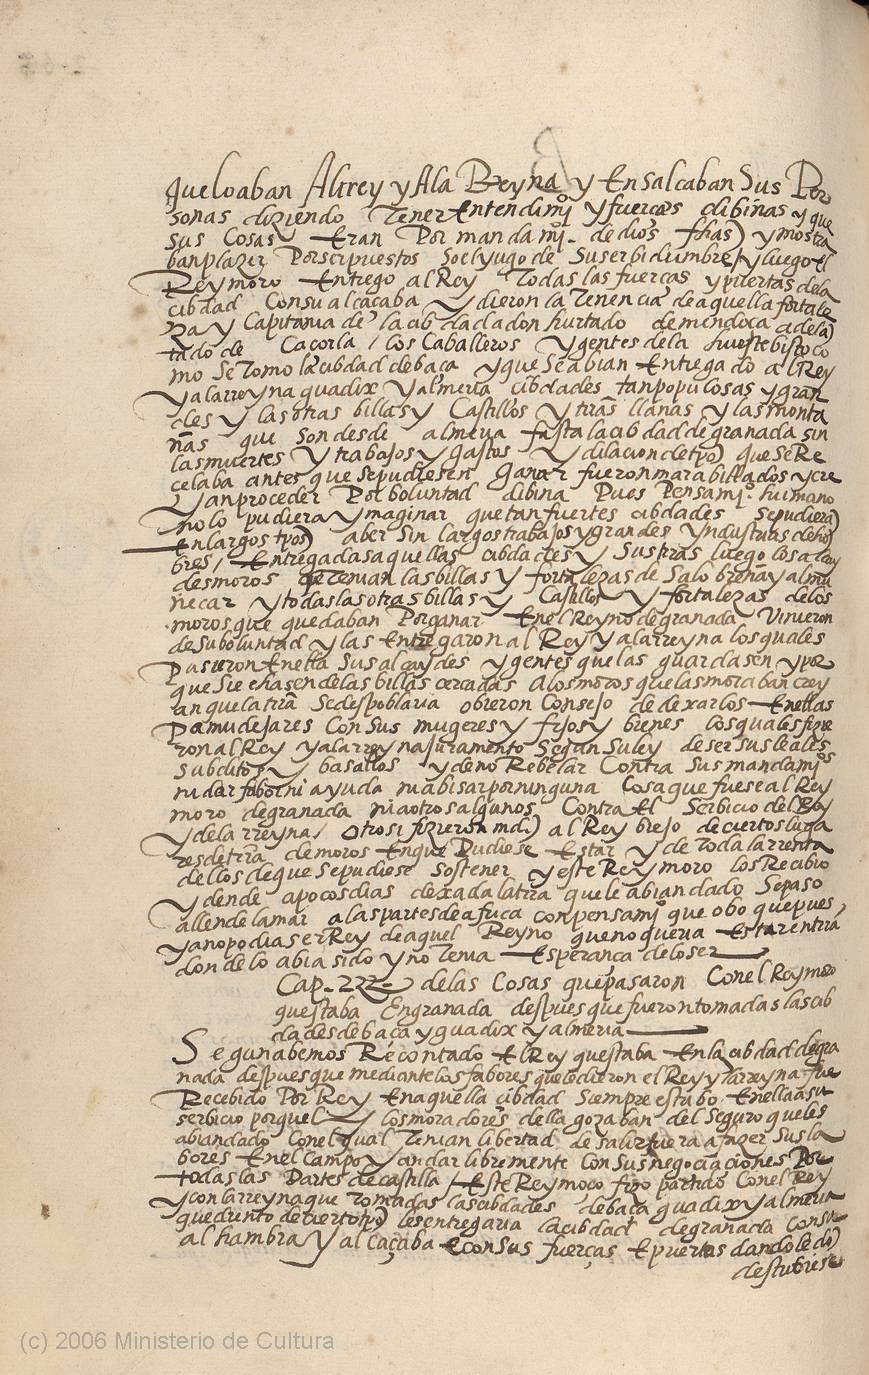 que loaban Al rrey y Ala Reyna y Ensalcaban Sus Per
sonas diziendo tener Entendimj° y fuerças dibinas y que
sus Cosas Eran Por mandamj° de dios fhas y mostra
ban plazer Por ser puestos so el yugo de Su serbidumbre / y luego el
Rey moro Entrego al Rey todas las fuercas y puertas dela
cibdad Con su alcaçaba y dieron la tenencia de aquella fortale
za y Capitania de la cibdad a don hurtado de mendoça adelā
tado de Caçorla / los Caballeros y gentes dela hueste bisto co
mo Se tomo la cibdad de baça y que Se abian Entregado al Rey
y a la rreyna guadix y almeria cibdades tan populosas y gran
des y las otras billas y Castillos y trās llanas y las monta
ñas que son desde almeria fasta la cibdad de granada sin
las muertes y trabajos y gastos y dilacion de tpō que se Re
celaba antes que se pudiesen ganar fueron marabillados y cre
yan proceder Por boluntad dibina Pues Pensamj° humano
no lo pudiera ymaginar que tan fuertes cibdades se pudierā
En largos tpōs aber sin largos trabajos y grandes yndustrias de hō
bres / Entregadas aquellas cibdades y sus trās luego los alcay
des moros q tenian las billas y fortalezas de Salobreña y almu
ñecar y todas las otras billas y Castillos y fortalezas de los
moros que quedaban Por ganar En el Reyno de granada Vinieron
de su boluntad y las Entregaron al Rey y a la rreyna los quales
Pusieron En ella sus alcaydes y gentes que las guardasen y por
que Si echasen de las billas cercadas a los moros que las moraban crey
an que la trrā Se despoblaria obieron Consejo de dexarlos En ellas
Pa mudejares Con sus mugeres y fijos y bienes los quales fizie
ron al Rey y a la rreyna juramento Segun su ley de ser sus leales
subditos y basallos y de no Rebelar Contra Sus mandamj°s
ni dar fabor ni ayuda ni abisar por ninguna Cosa que fuese al Rey
moro de granada ni a otros algunos Contra El Serbicio del Rey
y de la rreyna / otrosi fizieron md al Rey biejo de ciertos luga
res de trrā de moros En que Pudiese Estar y de toda la rrenta
dellos de que se pudiese sostener y este Rey moro los Recibio
y dende a pocos dias dexada la trrā que le abian dado Se paso
allende la mar a las partes de africa con pensamj° que obo que pues
ya no podia ser Rey de aquel Reyno que no queria Estar en trrā
donde lo abia sido y no tenia Esperança de lo ser
Cap. de las Cosas que pasaron Con el Rey moro
que staba En granada despues que fueron tomadas las cib
dades de baça y guadix y almeria
Segun abemos Recontado El Rey que staba En la cibdad de gra
nada despues que mediante los fabores que le dieron el Rey y la rreyna fue
Recebido Por Rey En aquella cibdad Siempre estubo En ella a su
serbicio porquel y los moradores della gozaban del Seguro que les
abian dado Con el qual tenian libertad de salir fuera a fazer sus la
bores En el Campo y andar libremente Con sus negociaciones Por
todas las Partes de castilla / Este Rey moço fizo partido Con el Rey
y con la rreyna que tomadas las cibdades de baça guadix y almeria
que dentro de cierto tpō les entregaria la cibdad de granada Con su
alhambra y alcaçaba E con sus fuerças E puertas dandole